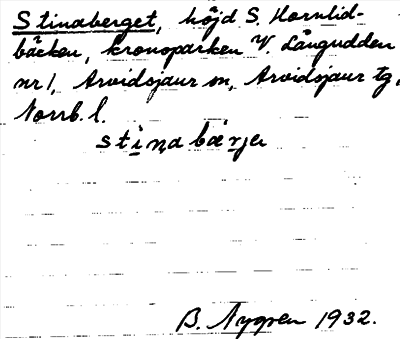 Stinaberget, höjd S. Hornlid-
bäcken, kronoparken V. Långudden
nr 1, Arvidsjaur sn, Arvidsjaur tg,
Norrb. l.
stinabärje
B. Nygren 1932.